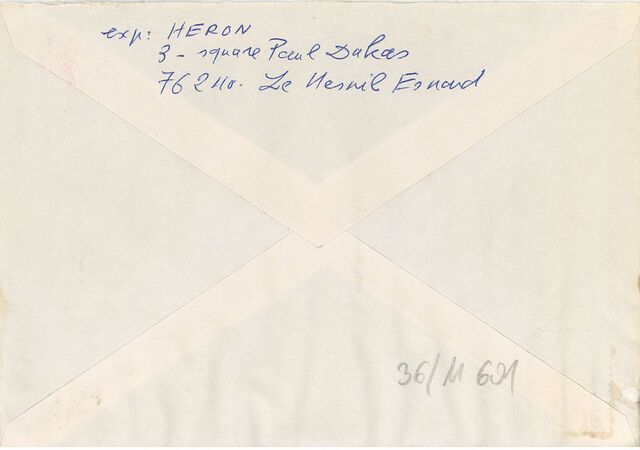 exp: HERON
3 - square Paul Dukas
76240. Le Mesnil Esnard
36/11 691